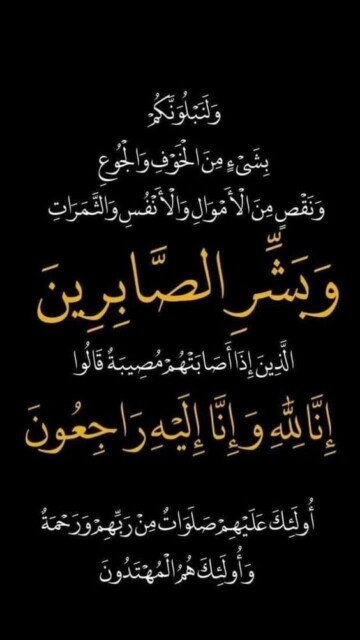 وَلَنَبْلُوَنَّكُمْ
بِشَيْءٍ مِنَ الْخَوْفِ وَالْجُوعِ
وَنَقْصٍ مِنَ الْأَمْوَالِ وَالْأَنْفُسِ وَالثَّمَرَاتِ
وَبَشِّرِ الصَّابِرِينَ
الَّذِينَ إِذَا أَصَابَتْهُمْ مُصِيبَةٌ قَالُوا
إِنَّا لِلَّهِ وَإِنَّا إِلَيْهِ رَاجِعُونَ
أُولَئِكَ عَلَيْهِمْ صَلَوَاتٌ مِنْ رَبِّهِمْ وَرَحْمَةٌ
وَأُولَئِكَ هُمُ الْمُهْتَدُونَ